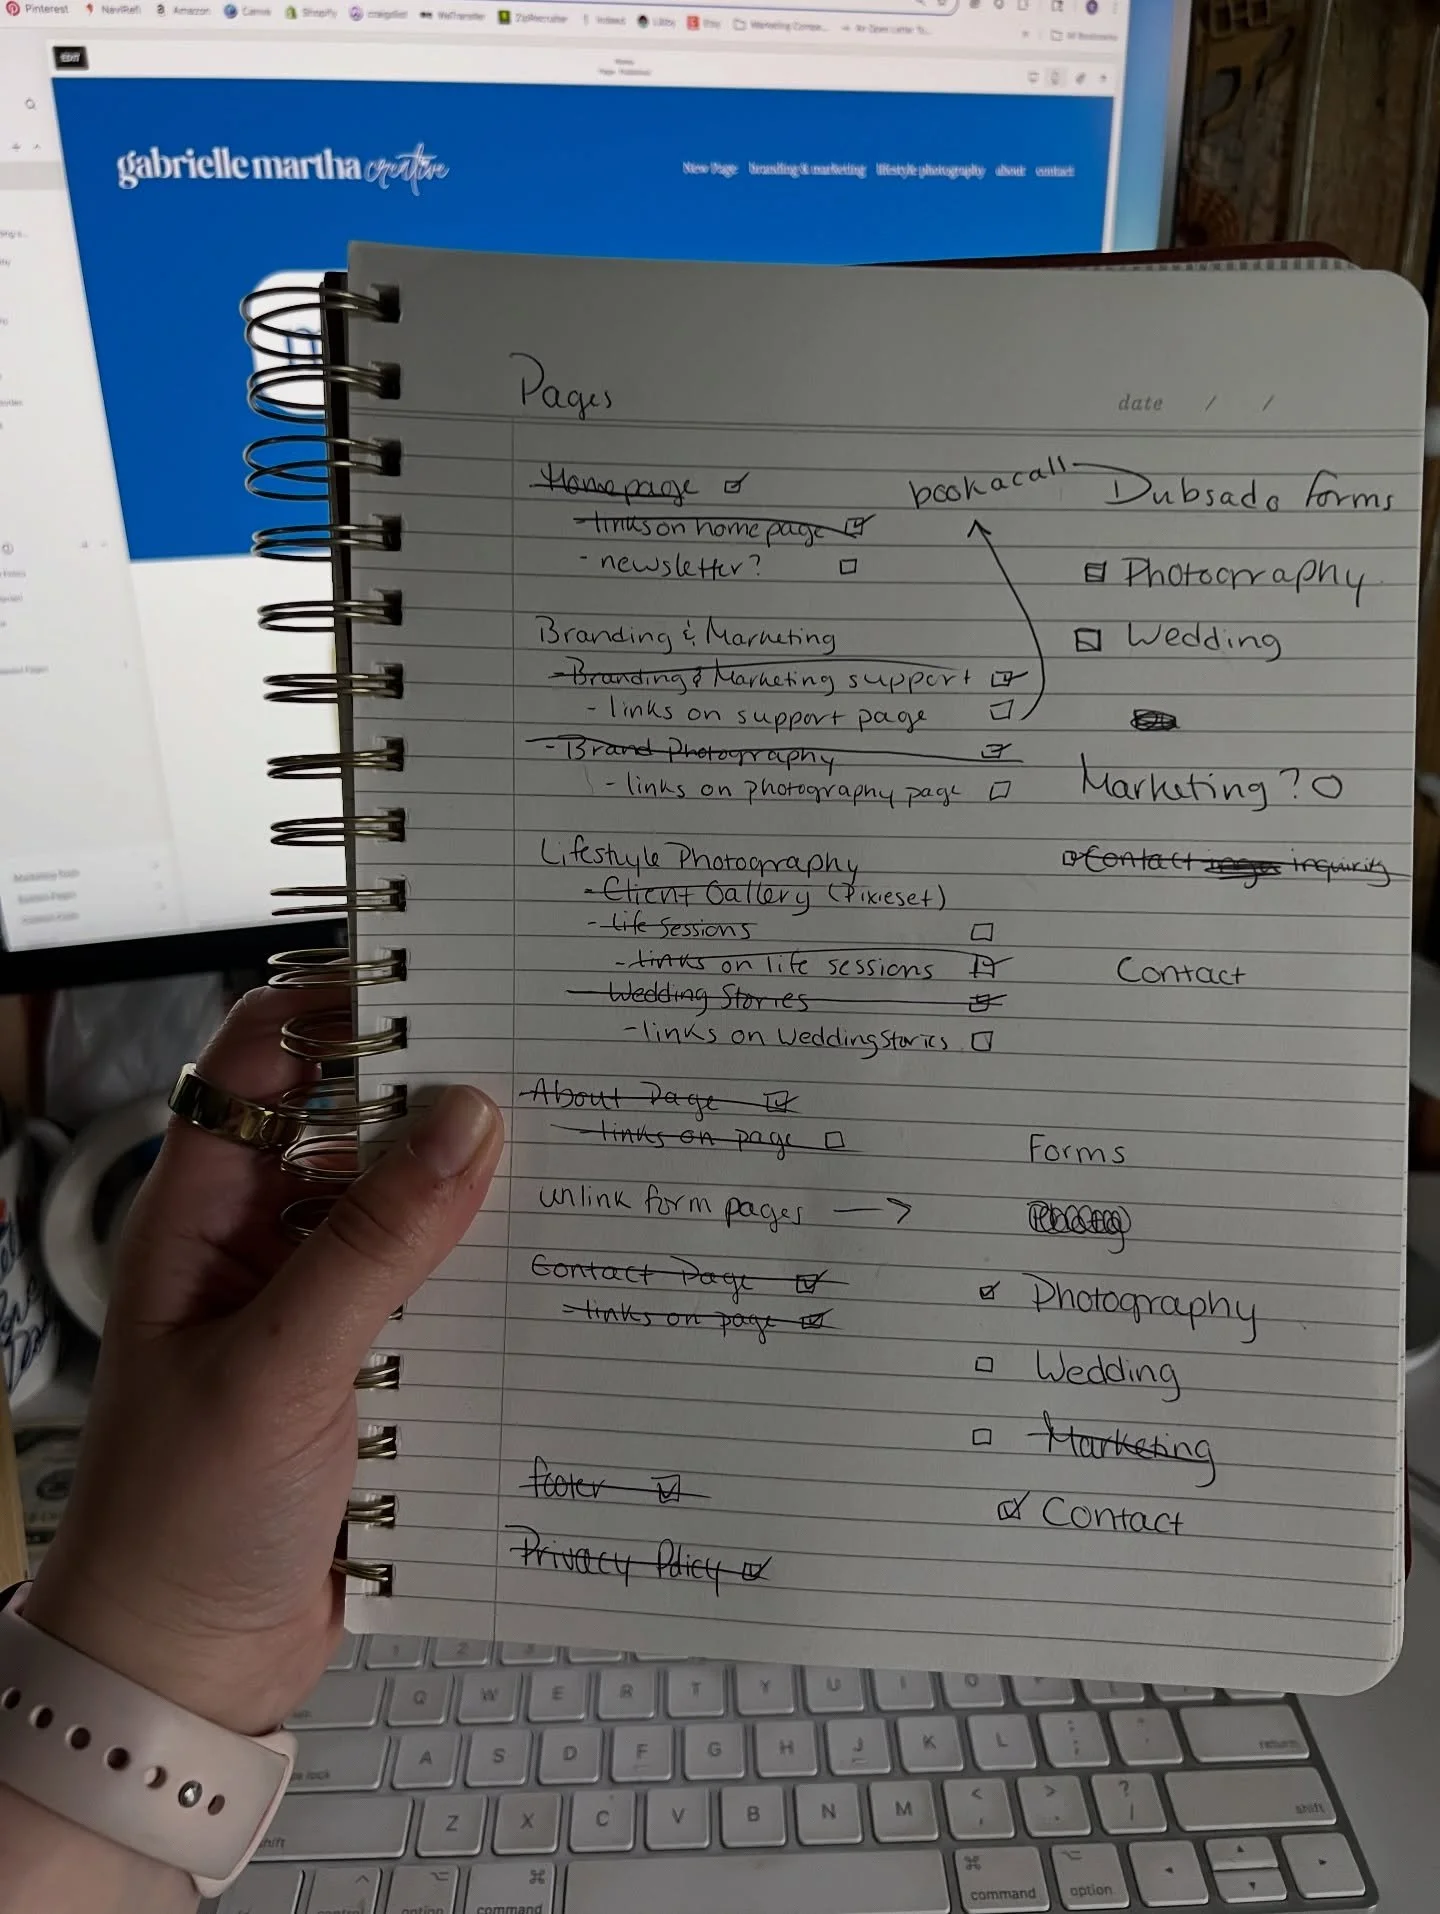 Pinterest NaviRefi Amazon Canva Shopify craigslist WeTransfer ZipRecruiter Indeed Libby Etsy Marketing Compa... An Open Letter To...
All Bookmarks
EDIT
gabrielle martha creative
New Page branding & marketing lifestyle photography about contact
Pages
date / /
Homepage
- links on homepage
- newsletter?
Branding & Marketing
- Branding & Marketing support
- links on support page
- Brand Photography
- links on photography page
Lifestyle Photography
- Client Gallery (Pixieset)
- Life Sessions
- links on life sessions
- Wedding Stories
- links on Wedding Stories
About Page
- links on page
unlink form pages →
Contact Page
- links on page
footer
Privacy Policy
book a call
Dubsado forms
Photography
Wedding
Marketing?
Contact inquiry
Contact
Forms
Photography
Wedding
Marketing
Contact
1 2 3
Q W E R T Y U I O
A S D F G H J K L ; ' return
Z X C V B N M < , > . ? / shift
option command command option